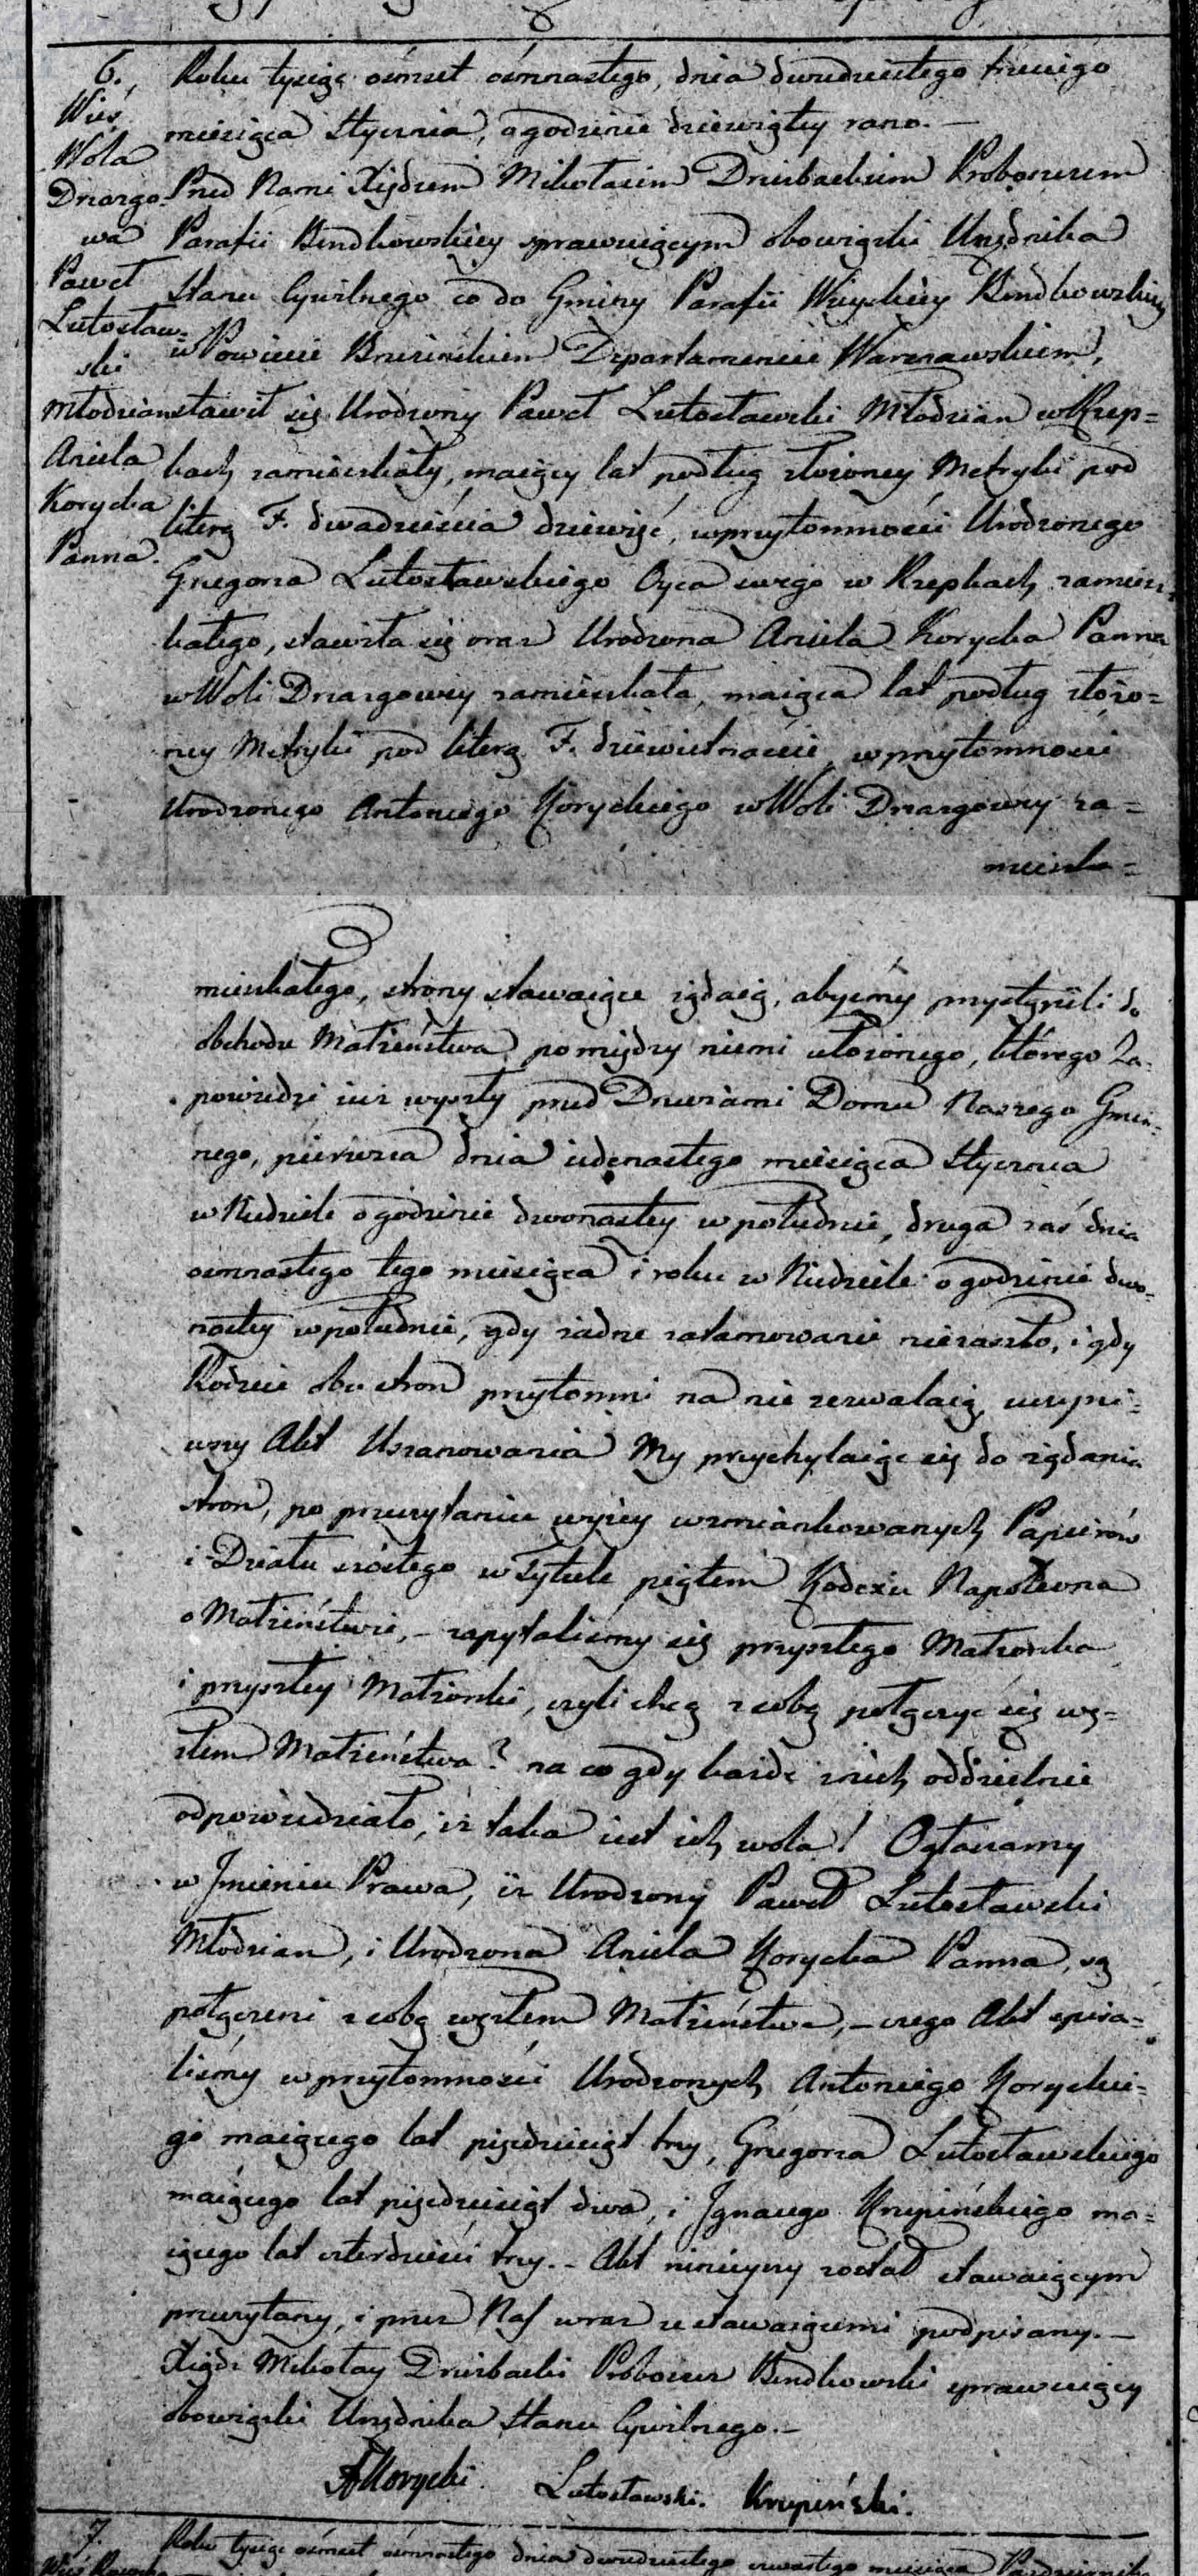 6.
Wieś
Wola
Drzazgo=
wa
Paweł
Lutosław=
ski
Młodzian
Aniela
Korycka
Panna.
Roku tysiąc ośmset ośmnastego, dnia dwudziestego trzeciego
miesiąca Stycznia, o godzinie dziewiątey rano. —
Przed Nami Xiędzem Mikołaiem Dzierbackim Proboszczem
Parafii Bendkowskiey sprawuiącym obowiązki Urzędnika
Stanu Cywilnego co do Gminy Parafii Wieyskiey Bendkowskiey
w Powiecie Brzezińskim Departamencie Warszawskiem,
stawił się Urodzony Paweł Lutosławski Młodzian w Rzep=
kach zamieszkały, maiący lat podług złożoney Metryki pod
literą F. dwadzieścia dziewięć, w przytomności Urodzonego
Grzegorza Lutosławskiego Oyca swego w Rzepkach zamiesz=
kałego, stawiła się oraz Urodzona Aniela Korycka Panna
w Woli Drzazgowey zamieszkała, maiąca lat podług złożo=
ney Metryki pod literą F. dziewietnaście, w przytomności
Urodzonego Antoniego Koryckiego w Woli Drzazgowey za=
mieszka=
mieszkałego, strony stawaiące żądaią, abyśmy przystąpili do
obchodu Małżeństwa pomiędzy niemi ułożonego, którego Za=
powiedzi iuż wyszły przed Drzwiami Domu Naszego Gmin=
nego, pierwsza dnia iedenastego miesiąca Stycznia
w Niedziele o godzinie dwonastey w południe, druga zaś dnia
osmnastego tego miesiąca i roku w Niedziele o godzinie dwo=
nastey w południe, gdy żadne zatamowanie niezaszło, i gdy
Rodzice obu stron przytomni na nie zezwalaią, uczyni=
wszy Akt Uszanowania My przychylaiąc się do żądania
stron, po przeczytaniu wyżey wzmiankowanych Papierów
i Działu szóstego w Tytule piątem Kodexu Napoleona
o Małżeństwie, – zapytaliśmy się przyszłego Małżonka
i przyszłey Małżonki, czyli chcą z sobą połączyć się wę=
złem Małżeństwa? na co gdy każde z nich oddzielnie
odpowiedziało, iż taka iest ich wola! Ogłaszamy
w Jmieniu Prawa, iż Urodzony Paweł Lutosławski
Młodzian, i Urodzona Aniela Korycka Panna, są
połączeni z sobą węzłem Małżeństwa, – czego Akt spisa=
liśmy w przytomności Urodzonych Antoniego Koryckie=
go maiącego lat pięćdziesiąt trzy, Grzegorza Lutosławskiego
maiącego lat pięćdziesiąt dwa, i Jgnacego Krupińskiego ma=
iącego lat czterdzieści trzy. – Akt ninieyszy został stawaiącym
przeczytany, i przez Nas wraz z stawaiącemi podpisany. —
Xiądz Mikołay Dzierbacki Proboszcz Bendkowski sprawuiący
obowiązki Urzędnika Stanu Cywilnego. –
AKorycki. Lutosławski. Krupiński.
7. Roku tysiąc ośmset ośmnastego dnia dwudziestego miesiąca
Wieś